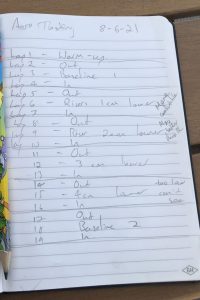 Aero Testing 8-6-21
Lap 1 - Warm-up
Lap 2 - Out
Lap 3 - Baseline 1
Lap 4 - In
Lap 5 - Out
Lap 6 - Risers 1cm lower
Lap 7 - In
Lap 8 - Out
Lap 9 - Riser 2cm lower
Lap 10 - In
11 - Out
12 - 3 cm lower
13 - In
14 - Out too low
15 - 4cm lower can't see
16 - In
17 Out
18 Baseline 2
19 In